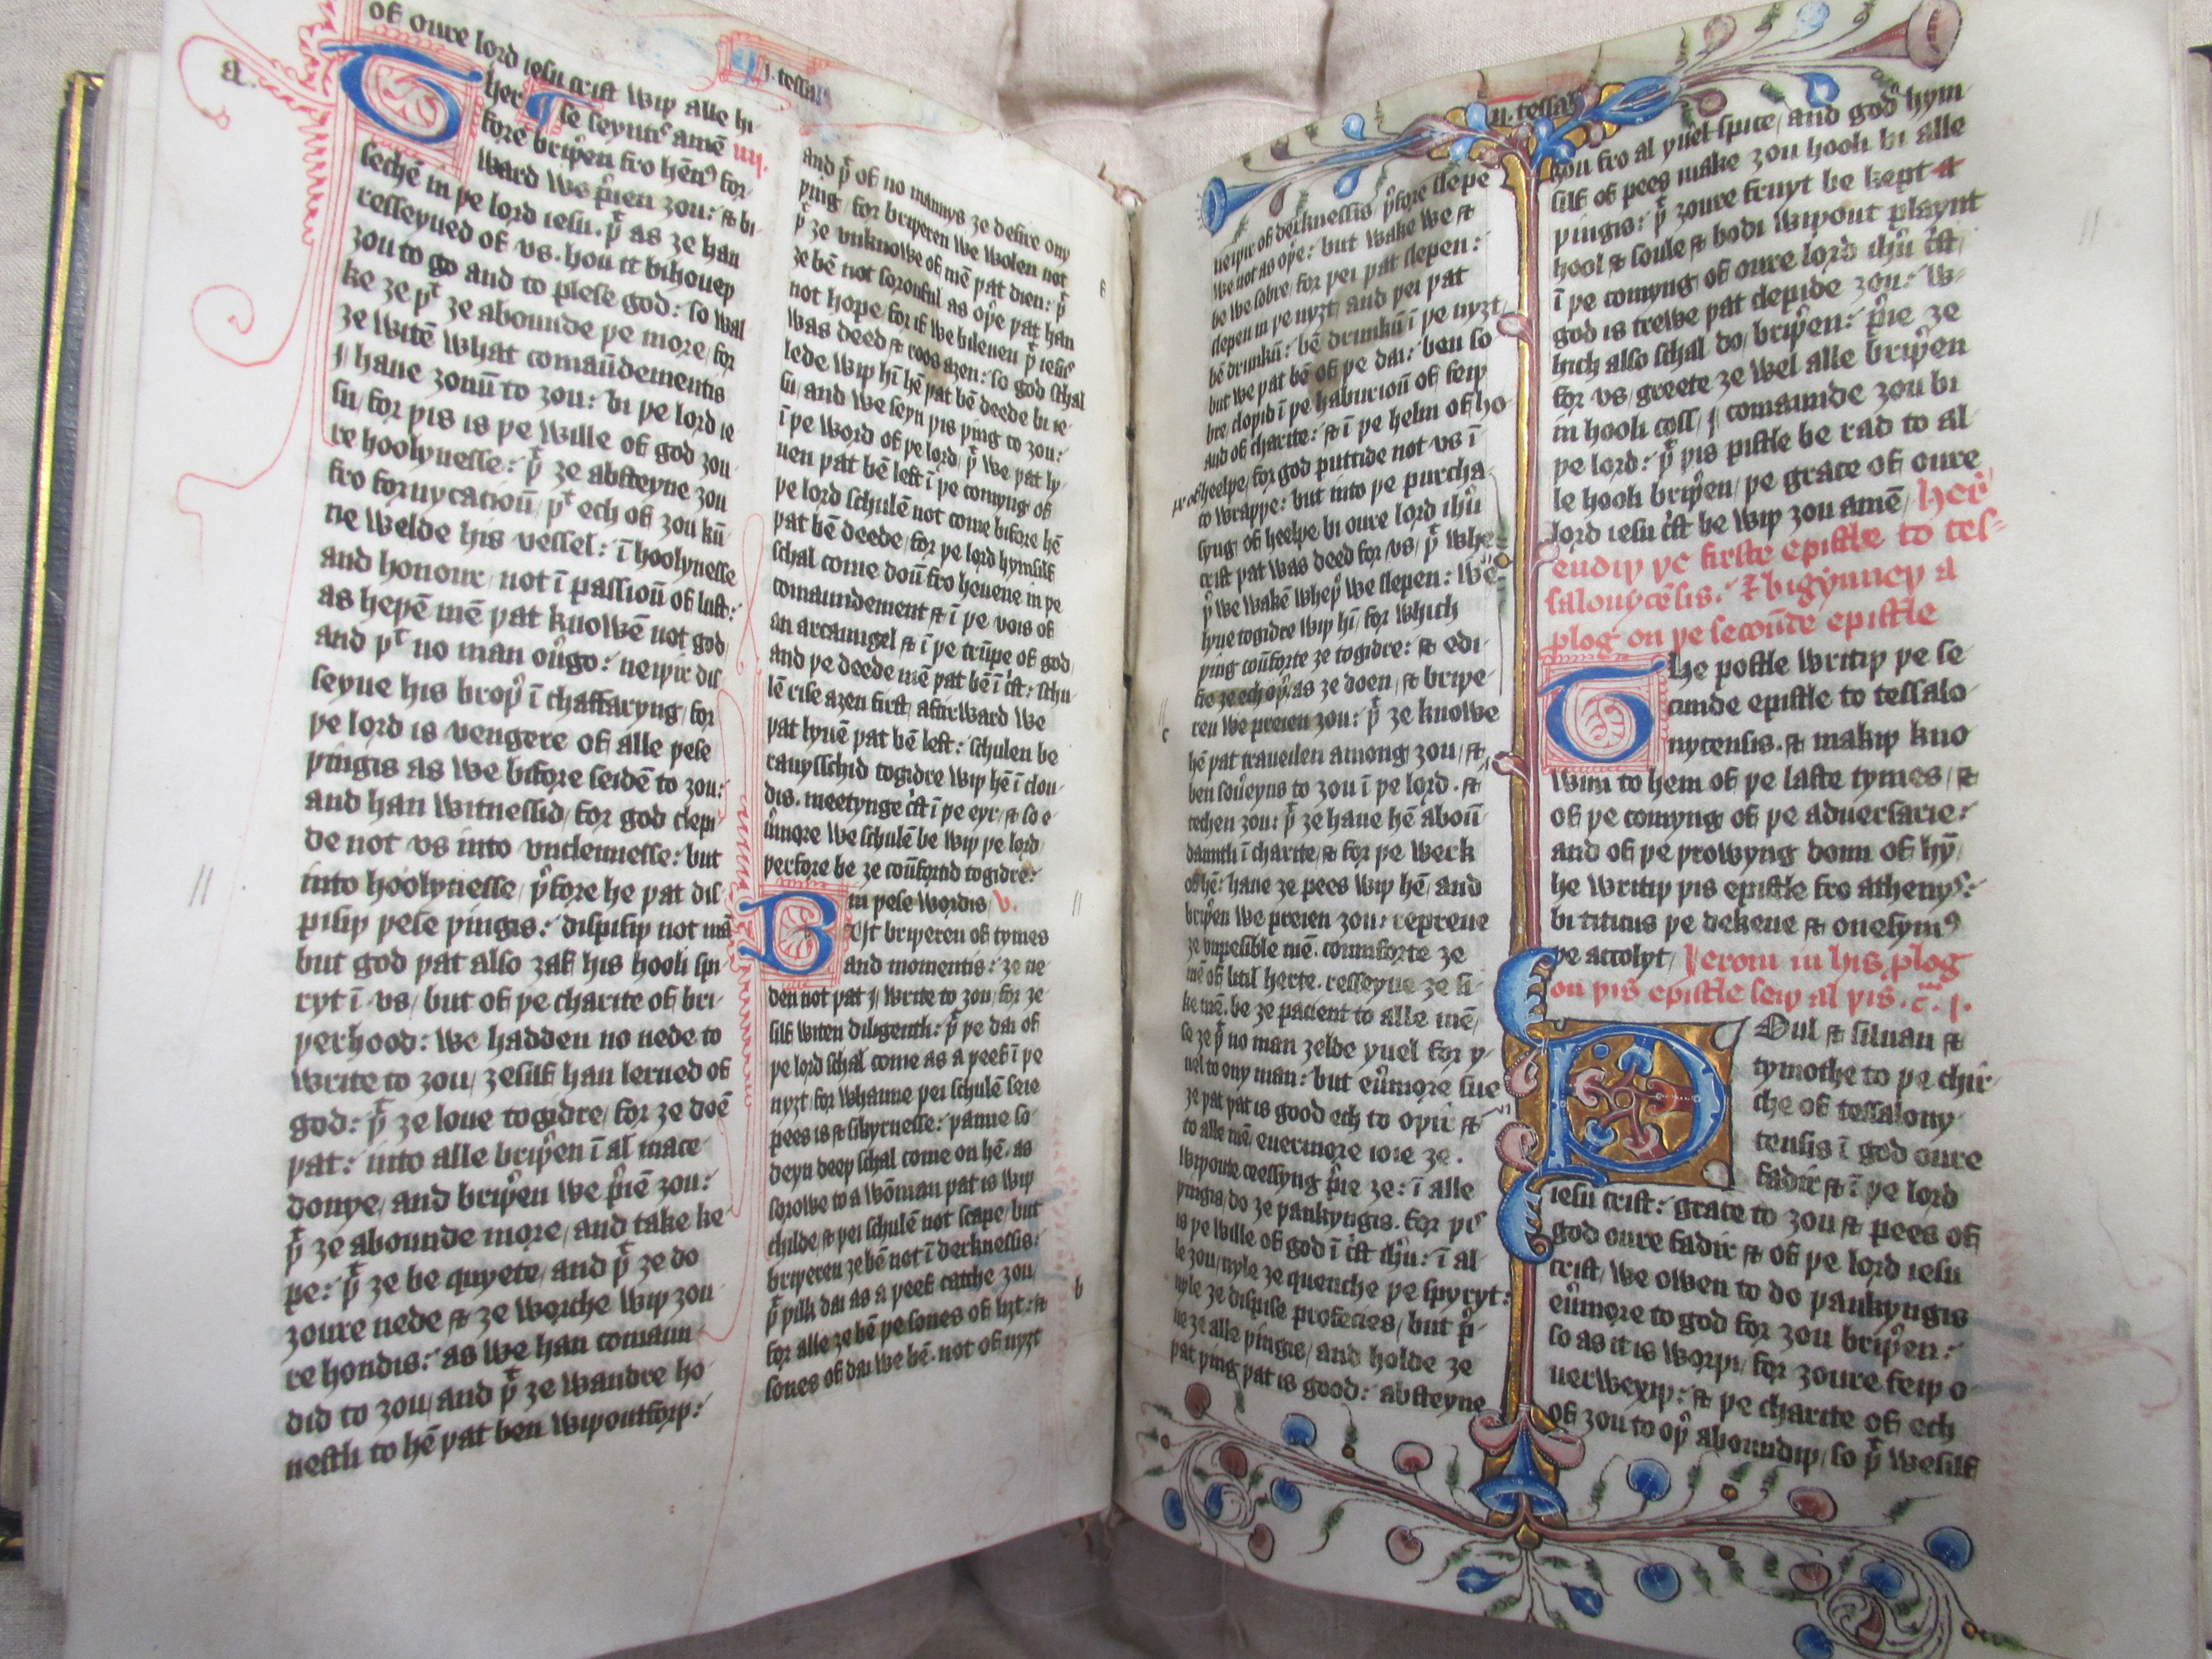 of oure lord iesu crist wiþ alle hi
j. tessal
her
se seyntꝭ amē iiij.
Therfore briþ̉en fro hēnꝰ for
ward we p̉ien ȝou: ⁊ bi
sechē in þe lord iesu. þͭ as ȝe han
resseyued of vs. hou it bihoueþ
ȝou to go and to plese god: so wal
ke ȝe þͭ ȝe abounde þe more, for
ȝe witē what comaūdementis
j haue ȝouū to ȝou: bi þe lord ie
su, for þis is þe wille of god ȝou
re hoolynesse: þͭ ȝe absteyne ȝou
fro fornycacioū, þͭ ech of ȝou kū
ne welde his vessel: ī hoolynesse
and honour, not ī passioū of lust:
as heþē mē þat knowē not god,
and þͭ no man oūgo: neiþir dis
seyue his broþ̉ ī chaffaryng, for
þe lord is vengere of alle þese
þingis as we bifore seidē to ȝou:
and han witnessid, for god clepi
de not vs into vnclennesse: but
into hoolynesse, þ̉fore he þat dis
pisiþ þese þingis: dispisiþ not mā
but god þat also ȝaf his hooli spi
ryt ī vs, but of þe charite of bri
þerhood: we hadden no nede to
write to ȝou, ȝesilf han lerned of
god: þͭ ȝe loue togidre, for ȝe doē
þat: into alle briþ̉en ī al mace
donye, and briþ̉en we p̉iē ȝou:
þͭ ȝe abounde more, and take ke
pe: þͭ ȝe be quyete, and þͭ ȝe do
ȝoure nede ⁊ ȝe worche wiþ ȝou
re hondis: as we han comaun
did to ȝou, and þͭ ȝe wandre ho
nestli to hē þat ben wiþoutforþ:
and þͭ of no mannys ȝe desire ony
þing, for briþeren we wolen not
þͭ ȝe vnknowe of mē þat dien: þͭ
ȝe bē not sorouful as oþ̉e þat han
not hope, for if we bileuen þͭ iesus
was deed ⁊ roos aȝen: so god schal
lede wiþ hī hē þat bē deede bi ie
su, and we seyn þis þing to ȝou:
ī þe word of þe lord, þͭ we þat ly
uen þat bē left ī þe comyng of
þe lord schulē not come bifore hē
þat bē deede, for þe lord hymsilf
schal come doū fro heuene in þe
comaundement ⁊ ī þe vois of
an arcaungel ⁊ ī þe trūpe of god,
and þe deede mē þat bē ī cͥst: schu
lē rise aȝen first, aftirward we
þat lyuē þat bē left: schulen be
rauysschid togidre wiþ hē ī clou
dis. meetynge cͥst ī þe eyr, ⁊ so e
ūmore we schulē be wiþ þe lord,
þerfore be ȝe coūfortid togidre:
in þese wordis, v.
But briþeren of tymes
and momentis: ȝe ne
den not þat j write to ȝou, for ȝe
silf witen diligentli: þͭ þe dai of
þe lord schal come as a þeef ī þe
nyȝt, for whanne þei schulē seie
pees is ⁊ sikyrnesse: þanne so
deyn deeþ schal come on hē, as
sorowe to a wōman þat is wiþ
childe, ⁊ þei schulē not scape, but
briþeren ȝe bē not ī derknessis:
þͭ þilk dai as a þeef catche ȝou,
for alle ȝe bē þe sones of liȝt: ⁊
sones of dai we bē. not of nyȝt
a
b
ij. tessal
neiþir of derknessis, þ̉fore slepe
we not as oþ̉e: but wake we ⁊
be we sobre, for þei þat slepen:
slepen in þe nyȝt, and þei þat
bē drunkū: bē drunkū ī þe nyȝt,
but we þat bē of þe dai: ben so
bre, cloþid ī þe haburioū of feiþ
and of charite: ⁊ ī þe helm of ho
pe of heelþe, for god puttide not vs ī
to wraþþe: but into þe purcha
syng of heelþe bi oure lord ihū
crist þat was deed for vs, þͭ whe
þ̉ we wakē wheþ̉ we slepen: we
lyue togidre wiþ hī, for which
þing coūforte ȝe togidre: ⁊ edi
fie ȝe ech oþ̉, as ȝe doen, ⁊ briþe
ren we preien ȝou: þͭ ȝe knowe
hē þat traueilen among ȝou, ⁊
ben soūeyns to ȝou ī þe lord. ⁊
techen ȝou: þͭ ȝe haue hē aboū
dauntli ī charite, ⁊ for þe werk
of hē: haue ȝe pees wiþ hē, and
briþ̉en we preien ȝou: repreue
ȝe vnpesible mē. coumforte ȝe
mē of litil herte. resseyue ȝe si
ke mē. be ȝe pacient to alle mē,
se ȝe þͭ no man ȝelde yuel for y
uel to ony man: but eūmore sue
ȝe þat þat is good ech to oþir ⁊
to alle mē, euermore ioie ȝe.
wiþoute ceessyng p̉ie ȝe: ī alle
þingis do ȝe þankyngis. for þis
is þe wille of god ī cͥst ihū: ī al
le ȝou, nyle ȝe quenche þe spyryt:
nyle ȝe dispise profecies, but p̉
ue ȝe alle þingis, and holde ȝe
þat þing þat is good: absteyne
c
ȝou fro al yuel spice, and god hym
silf of pees make ȝou hooli bi alle
þingis: þͭ ȝoure spiryt be kept
hool ⁊ soule ⁊ bodi wiþout playnt
ī þe comyng of oure lord ihū cͥst,
god is trewe þat clepide ȝou: w
hich also schal do, briþ̉en: p̉ie ȝe
for vs, greete ȝe wel alle briþ̉en
in hooli coss, j comaunde ȝou bi
þe lord: þͭ þis pistle be rad to al
le hooli briþ̉en, þe grace of oure
lord iesu cͥst be wiþ ȝou amē, her
endiþ þe firste epistle to tes
salonycēsis. ⁊ bigynneþ a
plog on þe secoūde epistle
The postle writiþ þe se
cunde epistle to tessalo
nycensis. ⁊ makiþ kno
wun to hem of þe laste tymes, ⁊
of þe comyng of þe aduersarie:
and of þe þrowyng doun of hȳ,
he writiþ þis epistle fro athenys:
bi titicus þe dekene ⁊ onesymꝰ
þe accolyt, Jerom in his plog
on þis epistle seiþ al þis. cᵐ. j.
Poul ⁊ siluan ⁊
tymothe to þe chir
che of tessalony
censis ī god oure
fadir ⁊ ī þe lord
iesu crist: grace to ȝou ⁊ pees of
god oure fadir ⁊ of þe lord iesu
crist, we owen to do þankyngis
eūmore to god for ȝou briþ̉en:
so as it is worþi, for ȝoure feiþ o
uerwexiþ: ⁊ þe charite of ech
of ȝou to oþ̉ aboundiþ, so þͭ we silf